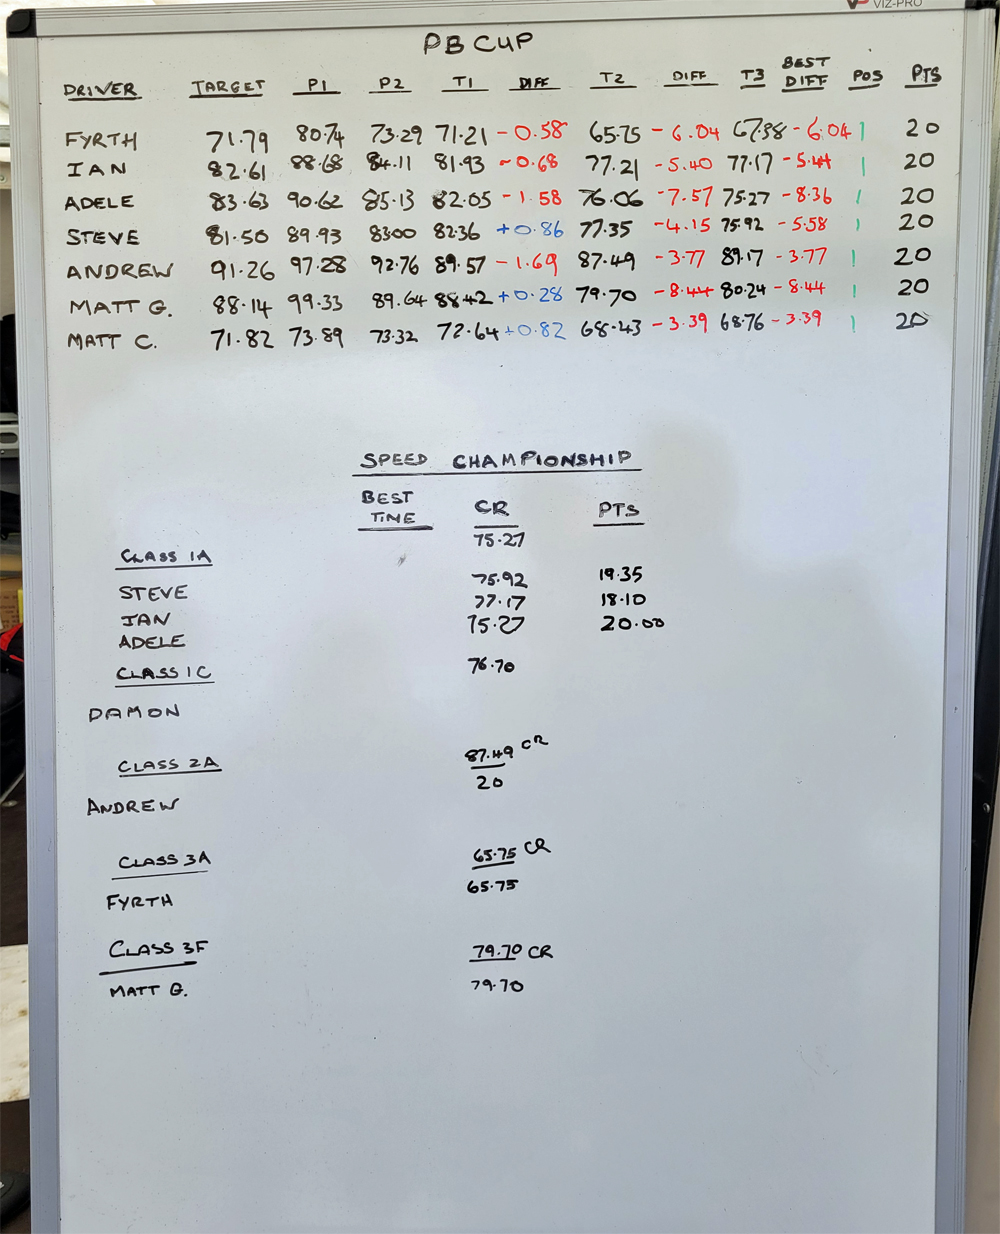 VIZ-PRO
PB CUP
DRIVER TARGET P1 P2 T1 DIFF T2 DIFF T3 BEST DIFF POS PTS
FYRTH 71.79 80.74 73.29 71.21 -0.58 65.75 -6.04 67.38 -6.04 1 20
IAN 82.61 88.68 84.11 81.93 -0.68 77.21 -5.40 77.17 -5.44 1 20
ADELE 83.63 90.62 85.13 82.05 -1.58 76.06 -7.57 75.27 -8.36 1 20
STEVE 81.50 89.93 83.00 82.36 +0.86 77.35 -4.15 75.92 -5.58 1 20
ANDREW 91.26 97.28 92.76 89.57 -1.69 87.49 -3.77 89.17 -3.77 1 20
MATT G. 88.14 99.33 89.64 88.42 +0.28 79.70 -8.44 80.24 -8.44 1 20
MATT C. 71.82 73.89 73.32 72.64 +0.82 68.43 -3.39 68.76 -3.39 1 20
SPEED CHAMPIONSHIP
BEST TIME CR PTS
CLASS 1A 75.27
STEVE 75.92 19.35
IAN 77.17 18.10
ADELE 75.27 20.00
CLASS 1C 76.70
DAMON
CLASS 2A 87.49 CR
20
ANDREW
CLASS 3A 65.75 CR
FYRTH 65.75
CLASS 3F 79.70 CR
MATT G. 79.70